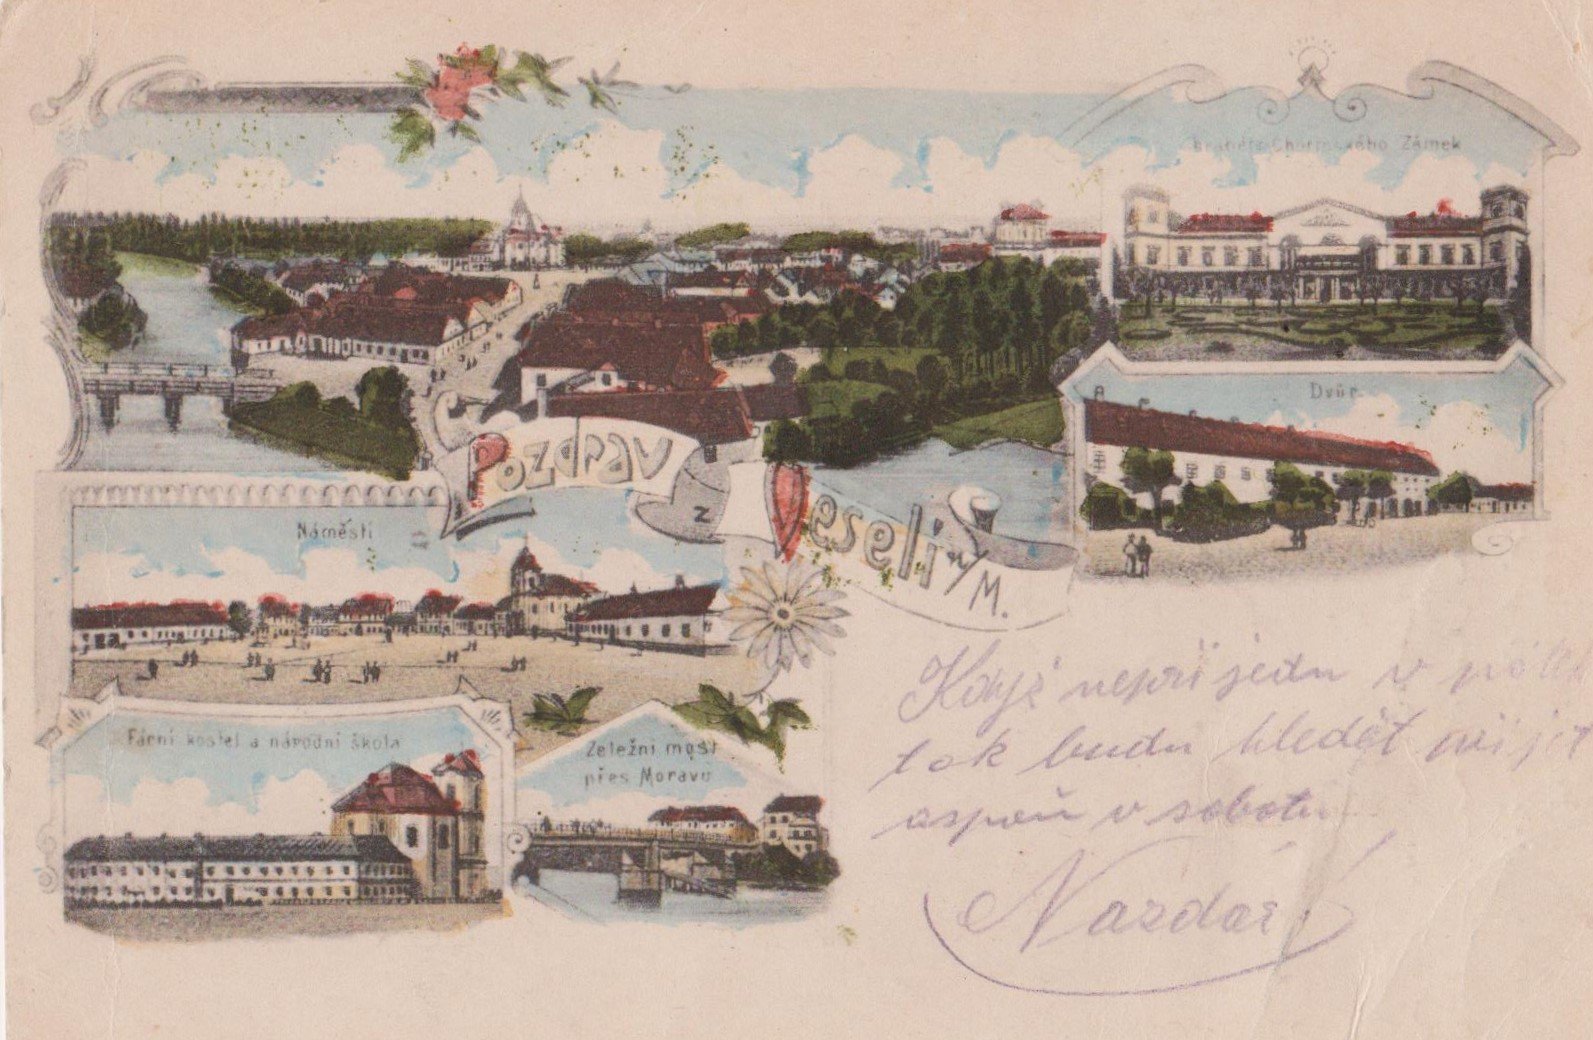 Chorinského Zámek
Dvůr
Pozdrav
z
Veselí n/M.
Náměstí
Fární kostel a národní škola
Železní most
přes Moravu
Když nepřijedu v
tak budu hledět přijet
aspoň v sobotu
Nazdar!